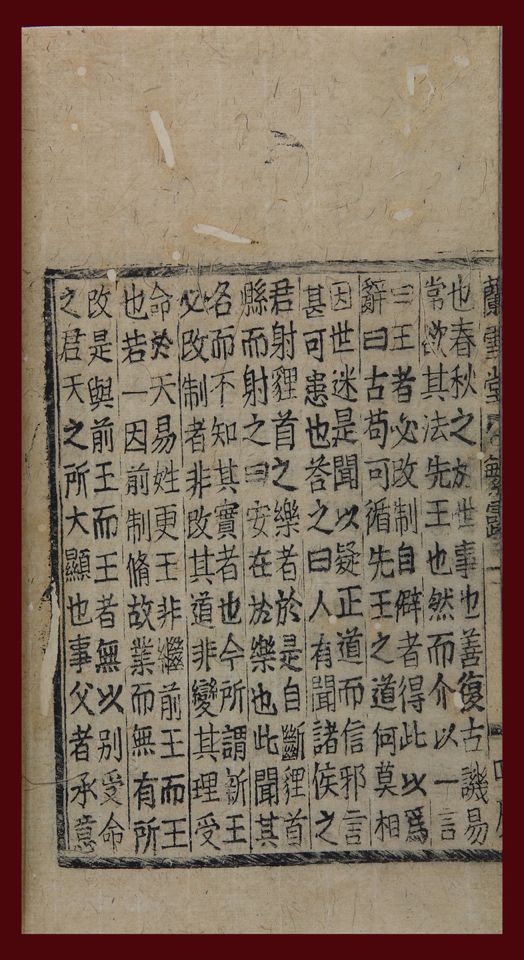 蘭雪堂 繁露一 四
也春秋之扵世事也善復古譏易
常欲其法先王也然而介以一言
曰王者必改制自僻者得此以爲
辭曰古苟可循先王之道何莫相
因世迷是聞以疑正道而信邪言
甚可患也荅之曰人有聞諸侯之
君射貍首之樂者於是自斷貍首
縣而射之曰安在扵樂也此聞其
名而不知其實者也今所謂新王
必改制者非改其道非變其理受
命於天易姓更王非繼前王而王
也若一因前制脩故業而無有所
改是與前王而王者無以別受命
之君天之所大顯也事父者承意